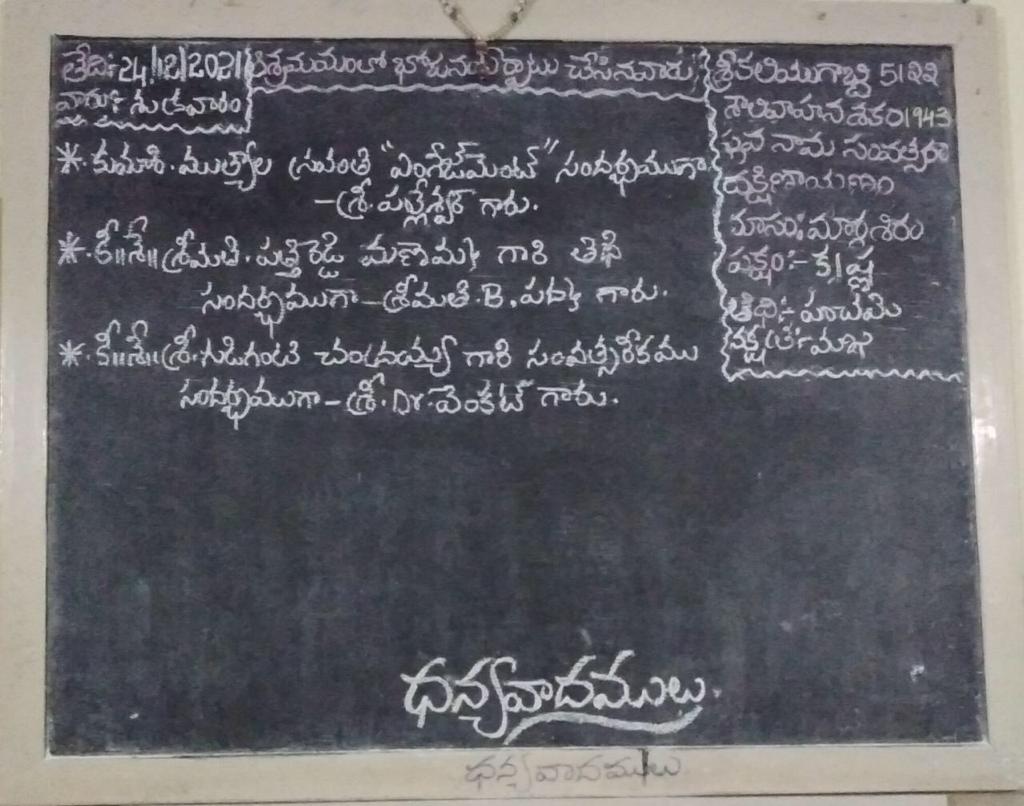 తేది:-24/12/2021
వారం: శుక్రవారం
ఆశ్రమములో భోజనం ఏర్పాటు చేసినవారు
* కుమారి. ముత్యాల స్రవంతి "ఎంగేజ్‌మెంట్" సందర్భముగా
-శ్రీ. పల్లేశ్వర్ గారు.
* కీ॥శే॥ శ్రీమతి. పత్తిరెడ్డి మణెమ్మ గారి తిథి
సందర్భముగా - శ్రీమతి. B. పద్మ గారు.
* కీ॥శే॥ శ్రీ. గుడిగంటి చంద్రయ్య గారి సంవత్సరీకము
సందర్భముగా - శ్రీ. Dr. వెంకట్ గారు.
శ్రీకలియుగాబ్ది 5122
శాలివాహన శకం 1943
ప్లవ నామ సంవత్సరం
దక్షిణాయణం
మాసం: మార్గశిరం
పక్షం:- కృష్ణ
తిథి:- పంచమి
నక్షత్రం: మాఘ
ధన్యవాదములు.
ధన్యవాదములు